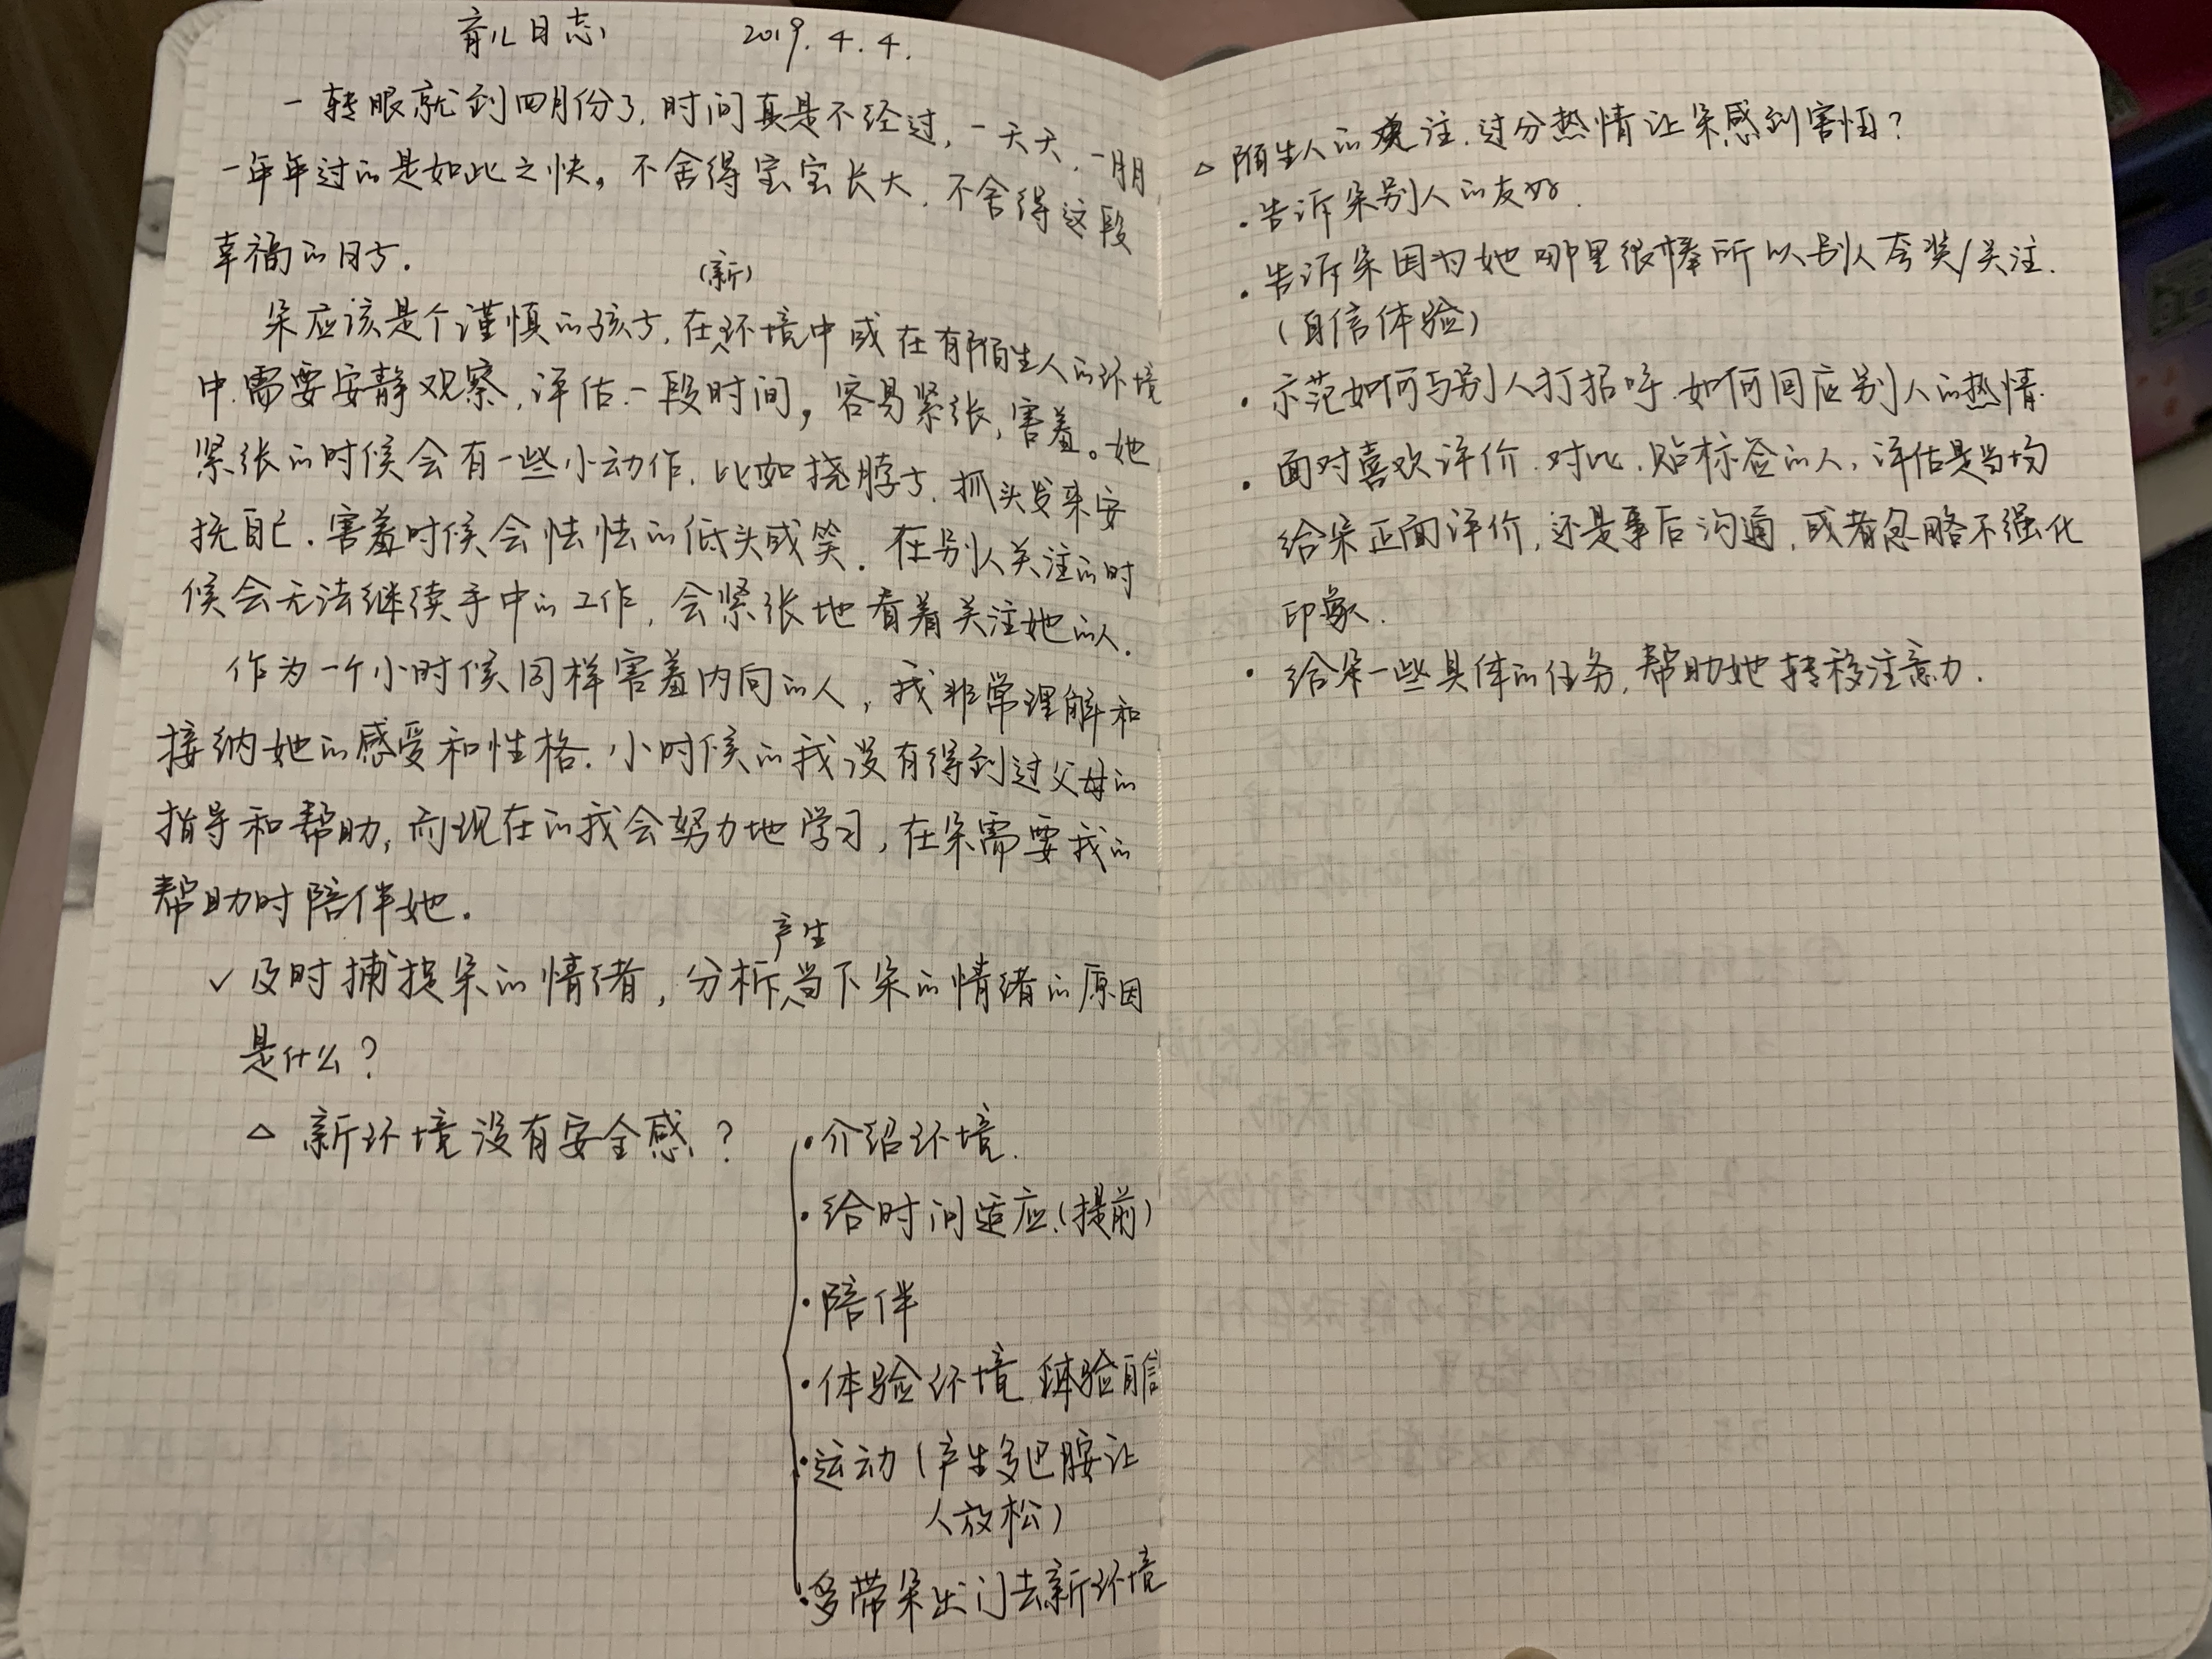 育儿日志 2019.4.4.
一转眼就到四月份了,时间真是不经过,一天天,一月月
一年年过的是如此之快。不舍得宝宝长大,不舍得这段
幸福的日子.
(新)
朵应该是个谨慎的孩子,在环境中或在有陌生人的环境
中.需要安静观察,评估一段时间,容易紧张,害羞。她
紧张的时候会有一些小动作,比如挠脖子,抓头发来安
抚自己.害羞时候会怯怯的低头或笑.在别人关注的时
候会无法继续手中的工作,会紧张地看着关注她的人.
作为一个小时候同样害羞内向的人,我非常理解和
接纳她的感受和性格.小时候的我没有得到过父母的
指导和帮助,而现在的我会努力地学习,在朵需要我的
帮助时陪伴她.
产生
✓及时捕捉朵的情绪,分析当下朵的情绪的原因
是什么?
△ 新环境没有安全感?
·介绍环境.
·给时间适应.(提前)
·陪伴
·体验环境 体验自信
·运动(产生多巴胺让
人放松)
·多带朵出门去新环境
△ 陌生人的关注.过分热情让朵感到害怕?
·告诉朵别人的友好.
·告诉朵因为她哪里很棒所以别人夸奖/关注.
(自信体验)
·示范如何与别人打招呼.如何回应别人的热情.
·面对喜欢评价.对比.贴标签的人,评估是当场
给朵正面评价,还是事后沟通,或者忽略不强化
印象.
·给朵一些具体的任务,帮助她转移注意力.